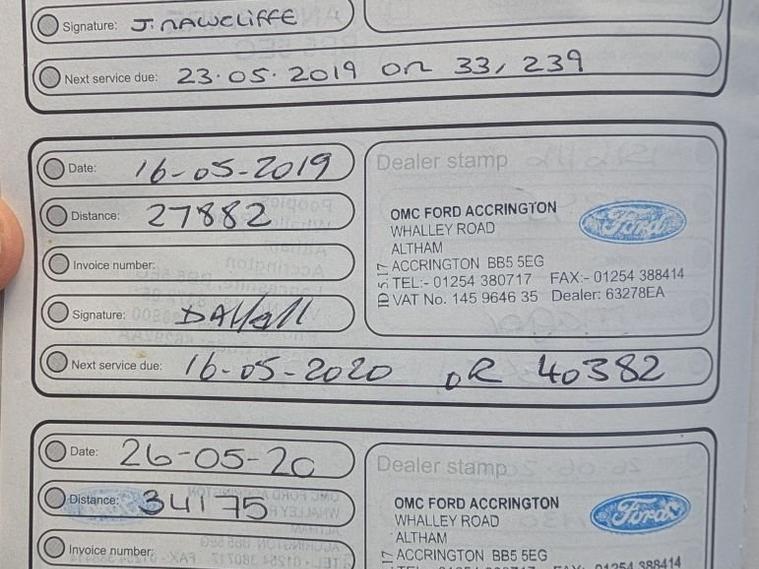 Signature: J. RAWCLIFFE
Next service due: 23.05.2019 OR 33,239
Date: 16-05-2019
Dealer stamp
Distance: 27882
OMC FORD ACCRINGTON
Ford
WHALLEY ROAD
ALTHAM
Invoice number:
ACCRINGTON BB5 5EG
TEL:- 01254 380717 FAX:- 01254 388414
VAT No. 145 9646 35 Dealer: 63278EA
ID 5.17
Signature:
Next service due: 16-05-2020 OR 40382
Date: 26-05-20
Dealer stamp
Distance: 34175
OMC FORD ACCRINGTON
Ford
WHALLEY ROAD
ALTHAM
Invoice number:
ACCRINGTON BB5 5EG
17